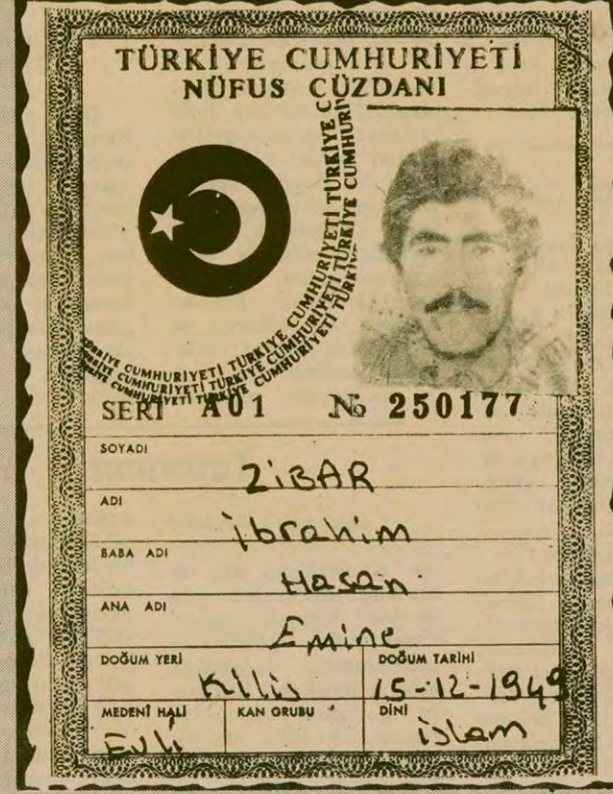 TÜRKİYE CUMHURİYETİ
NÜFUS CÜZDANI
TÜRKİYE CUMHURİYETİ TÜRKİYE CUMHURİYETİ
SERİ A01 № 250177
SOYADI
ZİBAR
ADI
İbrahim
BABA ADI
Hasan
ANA ADI
Emine
DOĞUM YERİ DOĞUM TARİHİ
Kilis 15-12-1949
MEDENİ HALİ KAN GRUBU DİNİ
Evli İslam